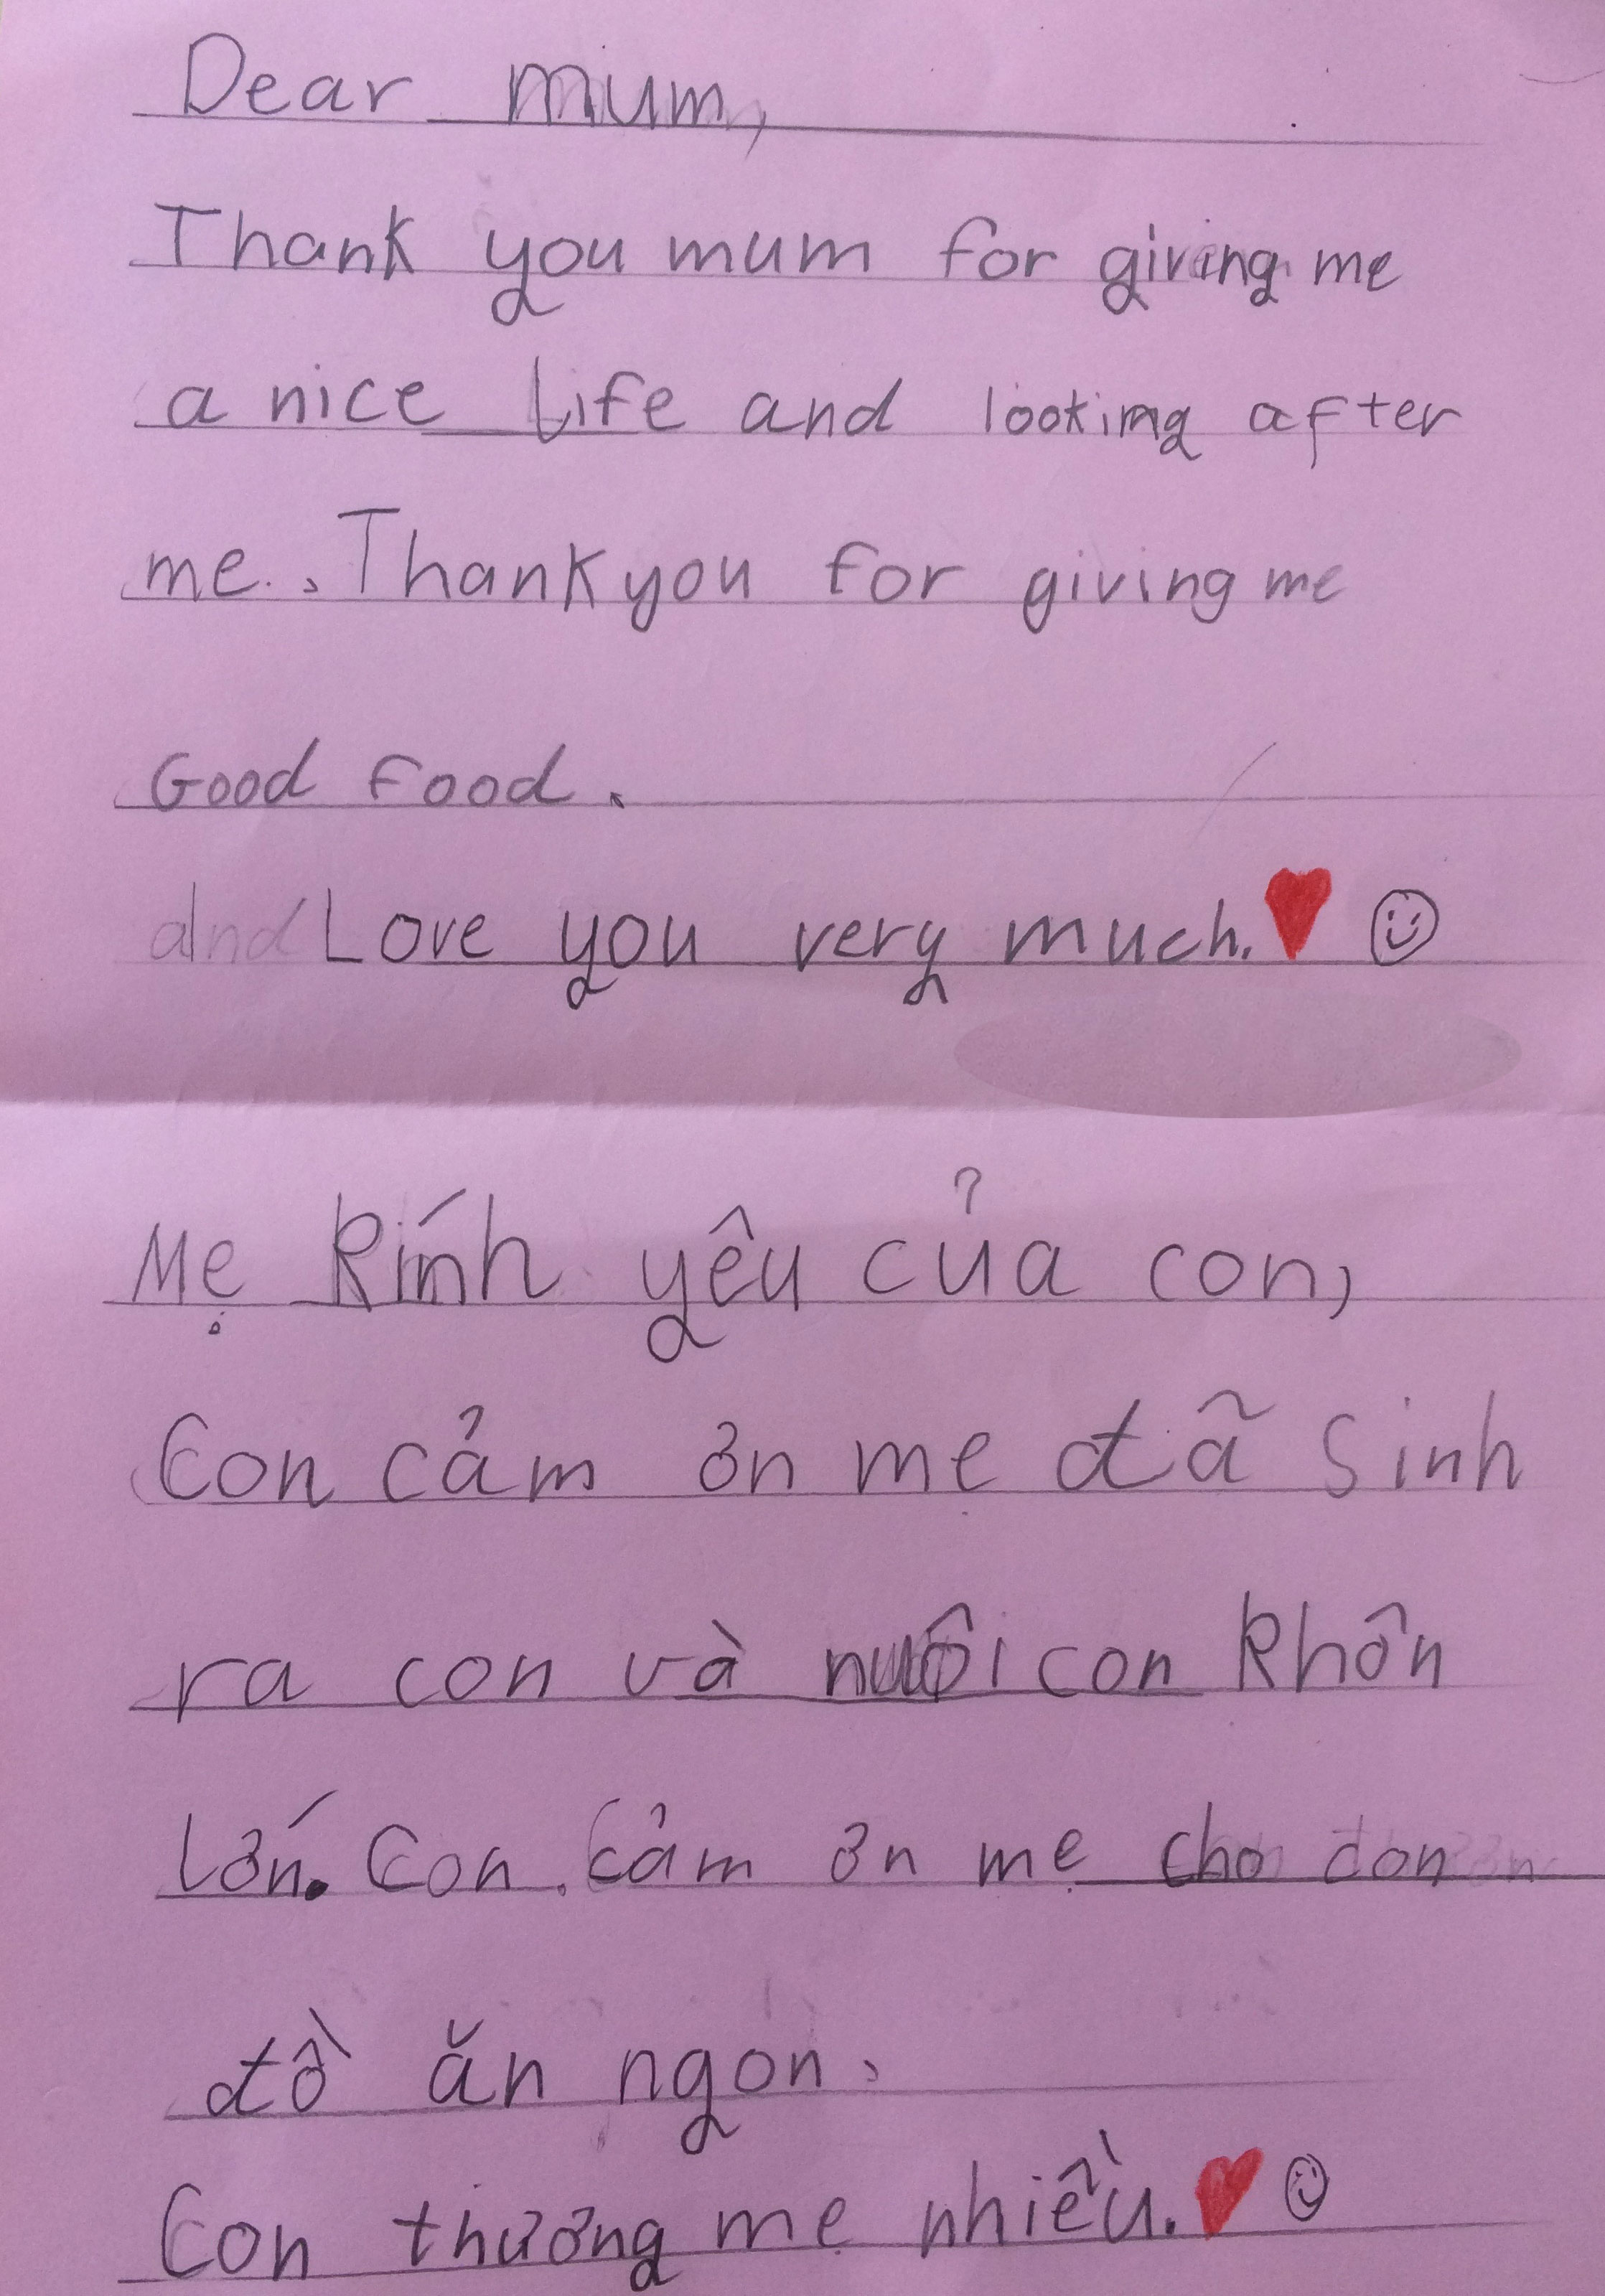 Dear mum,
Thank you mum for giving me
a nice life and looking after
me. Thank you for giving me
Good food.
and Love you very much.
Mẹ kính yêu của con,
Con cảm ơn mẹ đã sinh
ra con và nuôi con khôn
lớn. Con cảm ơn mẹ cho con
đồ ăn ngon.
Con thương mẹ nhiều.